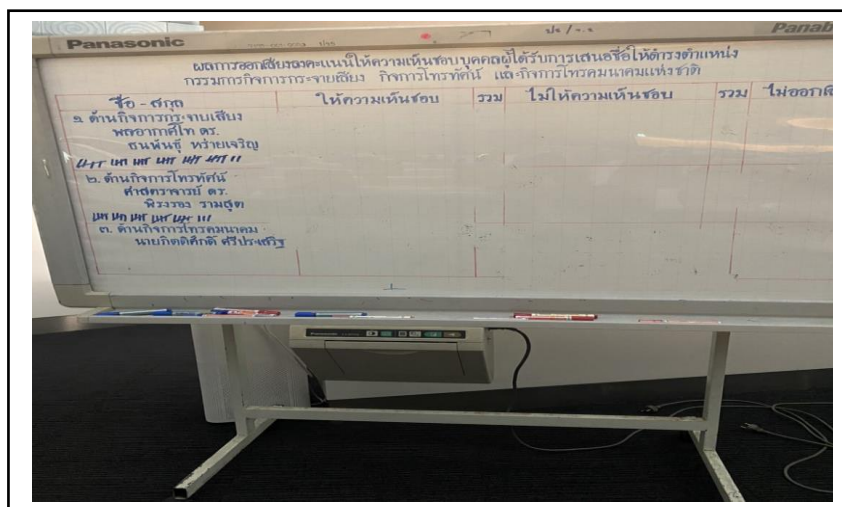 Panasonic
Panab
ผลการออกเสียงลงคะแนนให้ความเห็นชอบบุคคลผู้ได้รับการเสนอชื่อให้ดำรงตำแหน่ง
กรรมการกิจการกระจายเสียง กิจการโทรทัศน์ และกิจการโทรคมนาคมแห่งชาติ
ชื่อ - สกุล ให้ความเห็นชอบ รวม ไม่ให้ความเห็นชอบ รวม ไม่ออกเสี
๑. ด้านกิจการกระจายเสียง
พลอากาศโท ดร.
ธนพันธุ์ หร่ายเจริญ
๒. ด้านกิจการโทรทัศน์
ศาสตราจารย์ ดร.
พิรงรอง รามสูต
๓. ด้านกิจการโทรคมนาคม
นายกิตติศักดิ์ ศรีประเสริฐ
Panasonic